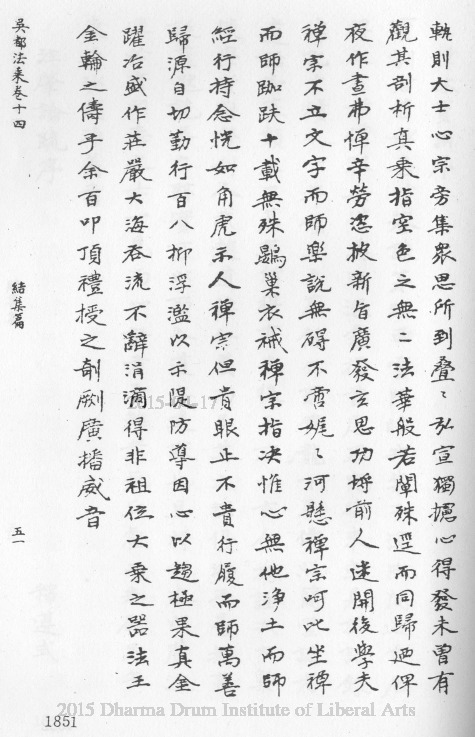 軌則大士心宗旁集眾思所到疊〻弘宣獨攄心得發未曾有
觀其剖析真乘指空色之無二法華般若闡殊逕而同歸迺俾
夜作晝弗憚辛勞恣披新旨廣發玄思功埒前人迷開後學夫
禪宗不立文字而師樂說無碍不啻娓〻河懸禪宗呵叱坐禪
而師跏趺十載無殊鵶巢衣裓禪宗指决惟心無他淨土而師
經行持念恍如角虎示人禪宗但貴眼正不貴行履而師萬善
歸源自切勤行百八抑浮濫以示隄防導因心以趨極果真金
躍冶盛作莊嚴大海吞流不辭涓滴得非祖位大乘之器法王
金輪之儔乎余百叩頂禮授之剞劂廣播威音
吳都法乘卷十四
結集篇
五一
1851
2015-01-17
2015 Dharma Drum Institute of Liberal Arts